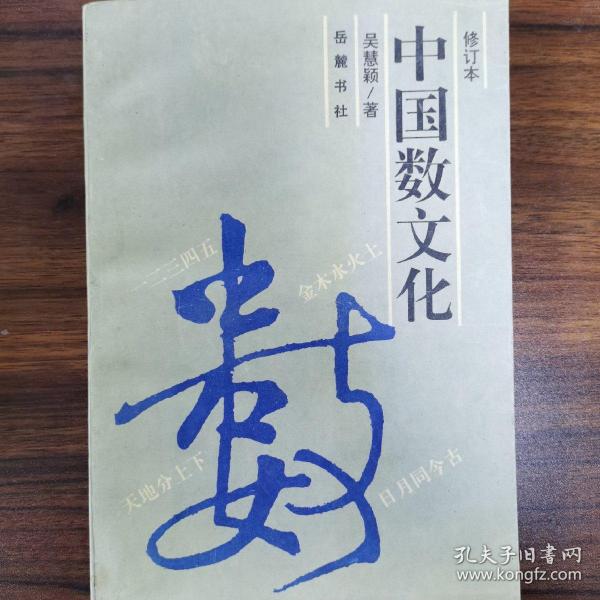 修订本
中国数文化
吴慧颖/著
岳麓书社
一二三四五
金木水火土
数
天地分上下
日月同今古
孔夫子旧书网
www.kongfz.com